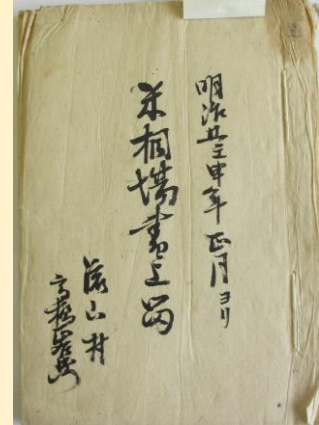 明治五壬申年正月ヨリ
米相場書上留
山村
高橋